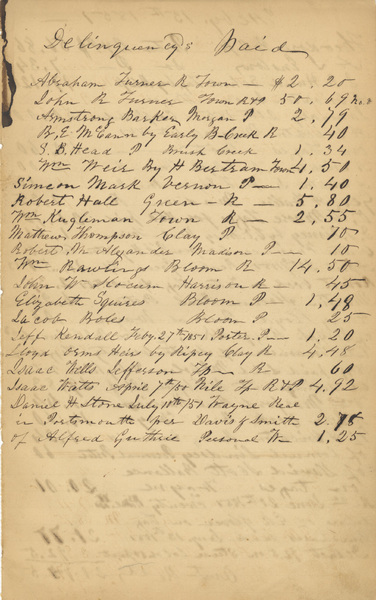 Delinquencys Paid
Abraham Turner R Town — $2.20
John R Turner Town R&P 50.69
Armstrong Barker Morgan P 2.79
B. E. McCann by Early B-Creek R 40
S. B. Head P Brush Creek 1.34
Wm Weir By H Bertram Town 4.50
Simeon Mark Vernon P — 1.40
Robert Hall Green — R — 5.80
Wm Kugleman Town R — 2.55
Mathew Thompson Clay P 10
Robert M Alexander Madison P — 10
Wm Rawlings Bloom R 14.50
John W Slocum Harrison R — 45
Elizabeth Squires Bloom P — 1.48
Jacob Boles Bloom P 25
Jeff Kendall Feby. 27th 1851 Porter P — 1.20
Lloyd Orms Heir by Ripey Clay R 4.48
Isaac Wells Jefferson Tp — R — 60
Isaac Watts Aprile 7th 50 Nile Tp R&P 4.92
Daniel H Stone July 10th/51 Wayne Real
in Portsmouth per Davis & Smith 2.78
of Alfred Guthrie Personal W — 1.25